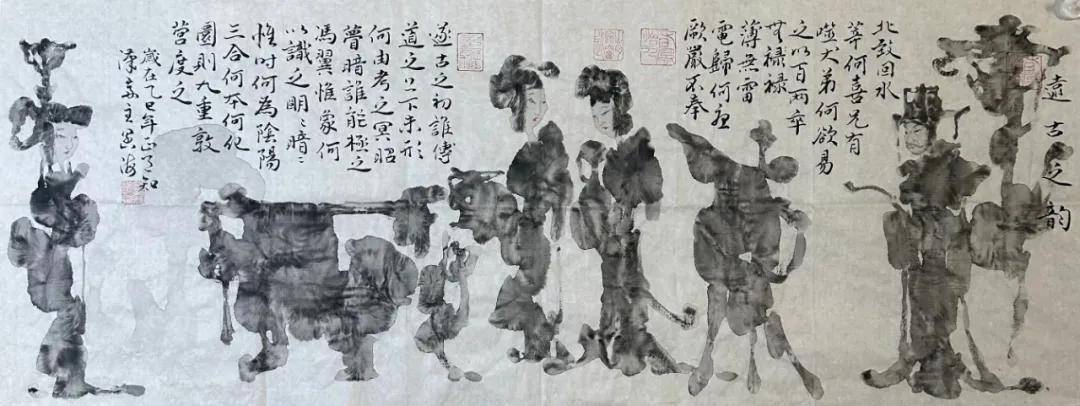 遠古之韵
北致回水
萃何喜兄有
噬犬弟何欲易
之以百兩卒
禄禄
薄無雷
電歸何
厥嚴不奉
遂古之初誰傳
道之上下未形
何由考之冥昭
瞢暗誰能極之
馮翼惟象何
以識之明〻暗〻
惟时何為陰陽
三合何本何化
圜則九重孰
營度之
歲在乙巳年正月知
主海